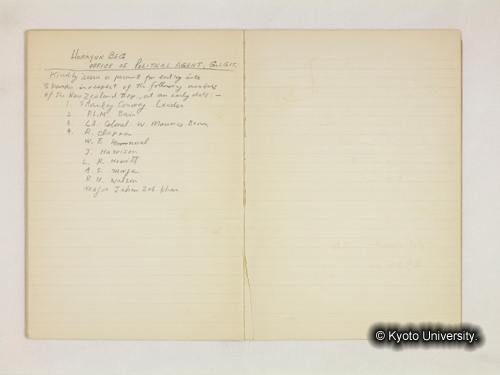 HUMAYUN BEG
OFFICE OF POLITICAL AGENT, GILGIT.
Kindly issue a permit for entry into
Skardu in respect of the following members
of the New Zealand Exp. at an early date: -
1. Stanley Conway Leader
2 P.L.M. Bain
3 Lt. Colonel W. Maurice Bern
4. R. Chapman
W. E.
J. Harrison
L. R. Hewitt
A. S.
R. H. Watson
Major Jahan Zeb Khan
© Kyoto University.